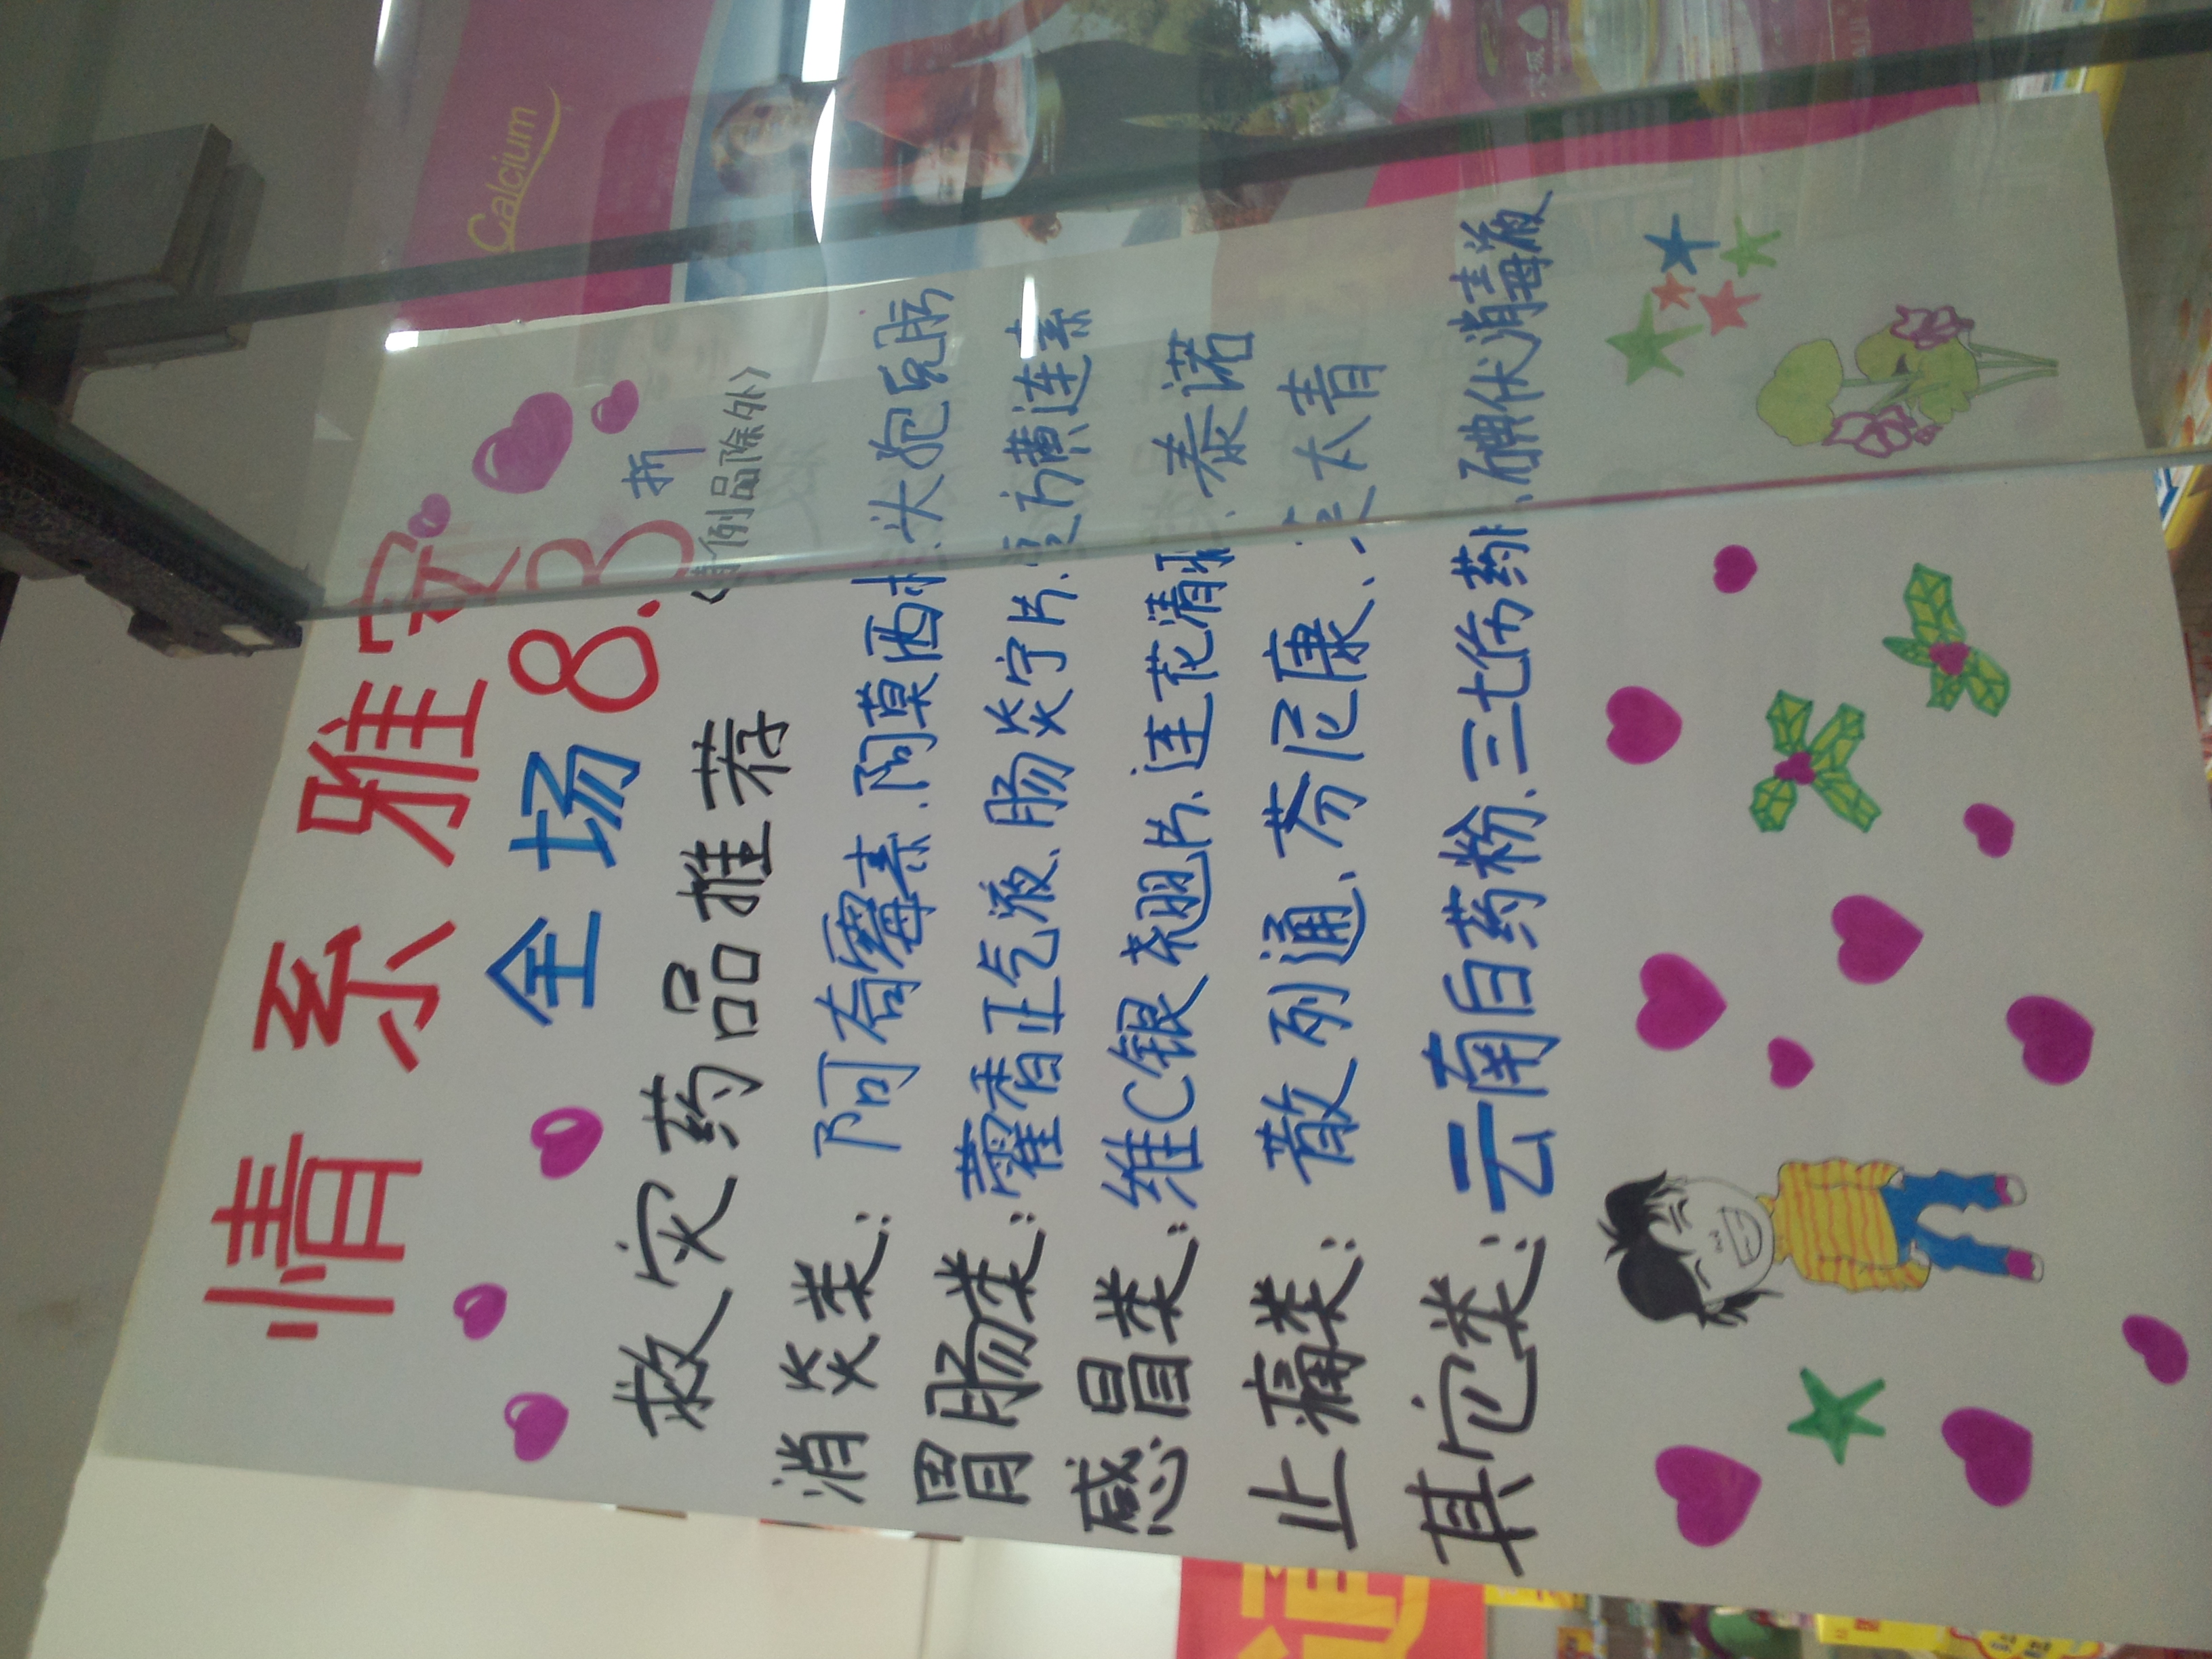 情系雅安
全场8.8折
《特例品除外》
救灾药品推荐
消炎类:阿奇霉素、阿莫西林、头孢克肟
胃肠类:藿香正气液、肠炎宁片、复方黄连素
感冒类:维C银翘片、连花清瘟、泰诺
止痛类:散列通、芬尼康、太青
其它类:云南白药粉、三七伤药片、碘伏消毒液
Calcium